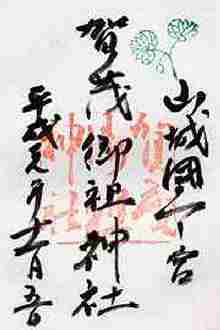 山城國一宮
賀茂御祖神社
平成元年十一月五日
賀茂御祖神社